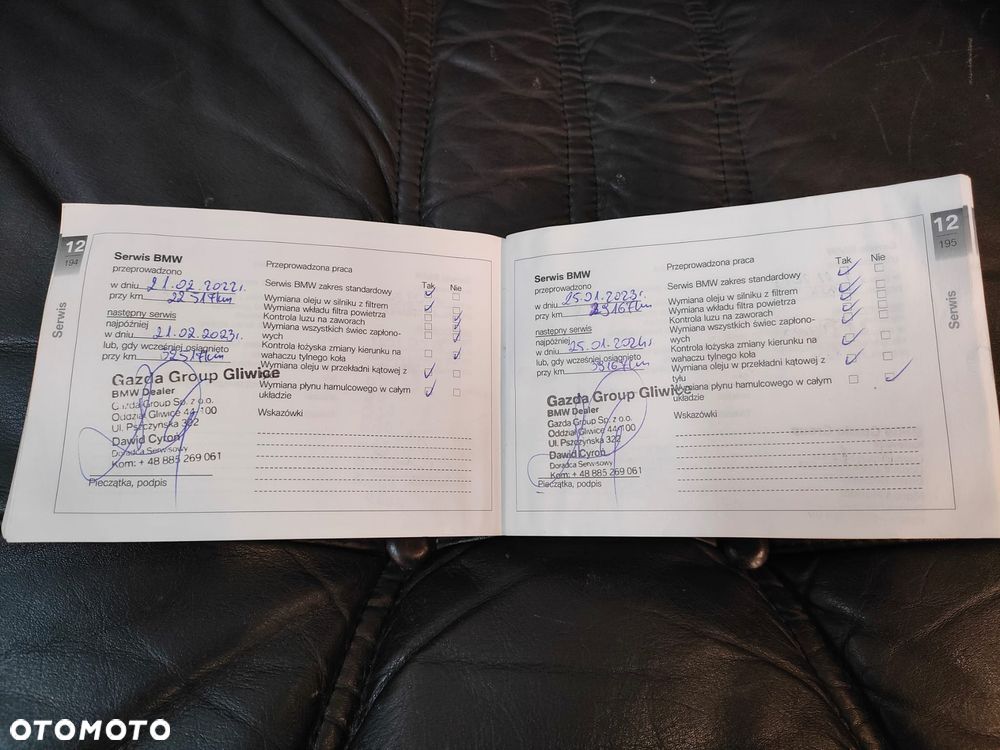 12
194
Serwis
Serwis BMW
przeprowadzono
w dniu 21.02.2022r.
przy km 22 517km
następny serwis
najpóźniej
w dniu 21.02.2023r.
lub, gdy wcześniej osiągnięto
przy km 32517km
Gazda Group Gliwice
BMW Dealer
Gazda Group Sp. z o.o.
Oddział Gliwice 44-100
Ul. Pszczyńska 322
Dawid Cyroń
Doradca Serwisowy
Kom: + 48 885 269 061
Pieczątka, podpis
Przeprowadzona praca
Tak Nie
Serwis BMW zakres standardowy
Wymiana oleju w silniku z filtrem
Wymiana wkładu filtra powietrza
Kontrola luzu na zaworach
Wymiana wszystkich świec zapłono-
wych
Kontrola łożyska zmiany kierunku na
wahaczu tylnego koła
Wymiana oleju w przekładni kątowej z
tyłu
Wymiana płynu hamulcowego w całym
układzie
Wskazówki
12
195
Serwis
Serwis BMW
przeprowadzono
w dniu 25.01.2023r.
przy km 29167km
następny serwis
najpóźniej
w dniu 25.01.2024r
lub, gdy wcześniej osiągnięto
przy km 39167km
Gazda Group Gliwice
BMW Dealer
Gazda Group Sp. z o.o.
Oddział Gliwice 44-100
Ul. Pszczyńska 322
Dawid Cyroń
Doradca Serwisowy
Kom: + 48 885 269 061
Pieczątka, podpis
Przeprowadzona praca
Tak Nie
Serwis BMW zakres standardowy
Wymiana oleju w silniku z filtrem
Wymiana wkładu filtra powietrza
Kontrola luzu na zaworach
Wymiana wszystkich świec zapłono-
wych
Kontrola łożyska zmiany kierunku na
wahaczu tylnego koła
Wymiana oleju w przekładni kątowej z
tyłu
Wymiana płynu hamulcowego w całym
układzie
Wskazówki
OTOMOTO